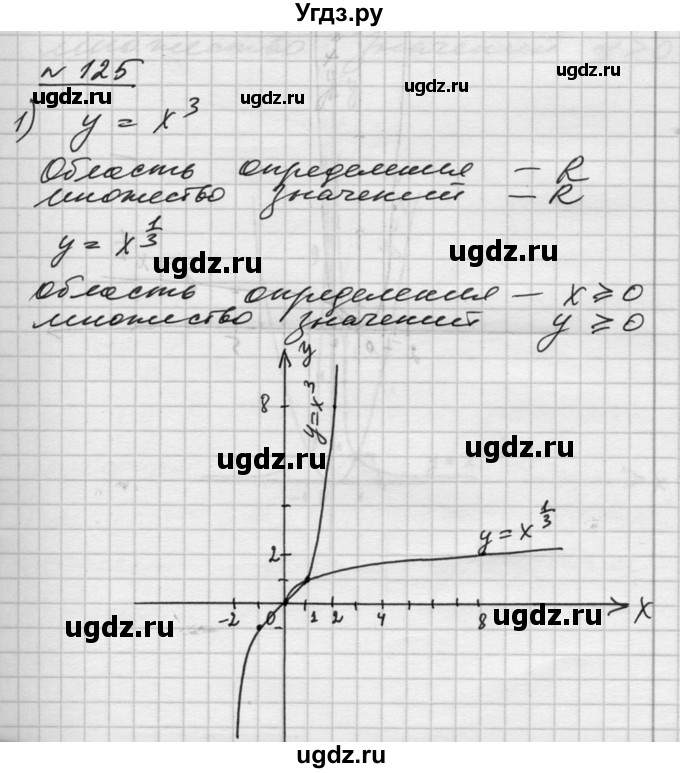 Угдз.ру
№ 125
ugdz.ru ugdz.ru ugdz.ru ugdz.ru
1) y = x³
Область определения – R
множество значений – R
y = x^{1/3}
ugdz.ru ugdz.ru
область определения – x ⩾ 0
множество значений y ⩾ 0
y
8
y=x³
ugdz.ru ugdz.ru
y = x^{1/3}
2
-2 0 1 2 4 8 x
ugdz.ru ugdz.ru ugdz.ru
ugdz.ru